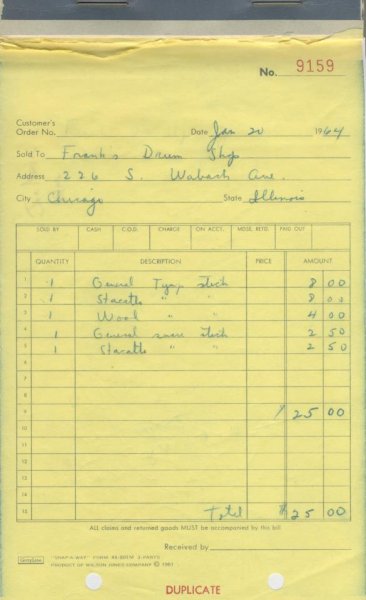 No. 9159
Customer's
Order No. Date Jan 20 1964
Sold To Franks Drum Shop
Address 226 S. Wabash Ave.
City Chicago State Illinois
SOLD BY CASH C.O.D. CHARGE ON ACCT. MDSE. RETD. PAID OUT
QUANTITY DESCRIPTION PRICE AMOUNT
1 1 General Tymp stick 8 00
2 1 Stacatto " " 8 00
3 1 Wool " " 4 00
4 1 General snare stick 2 50
5 1 Stacatto " " 2 50
6
7
8
9 25 00
10
11
12
13
14
15 Total $25 00
ALL claims and returned goods MUST be accompanied by this bill
Received by
GrayLine "SNAP-A-WAY" FORM 44-801M 3-PARTS
PRODUCT OF WILSON JONES COMPANY © 1961
DUPLICATE